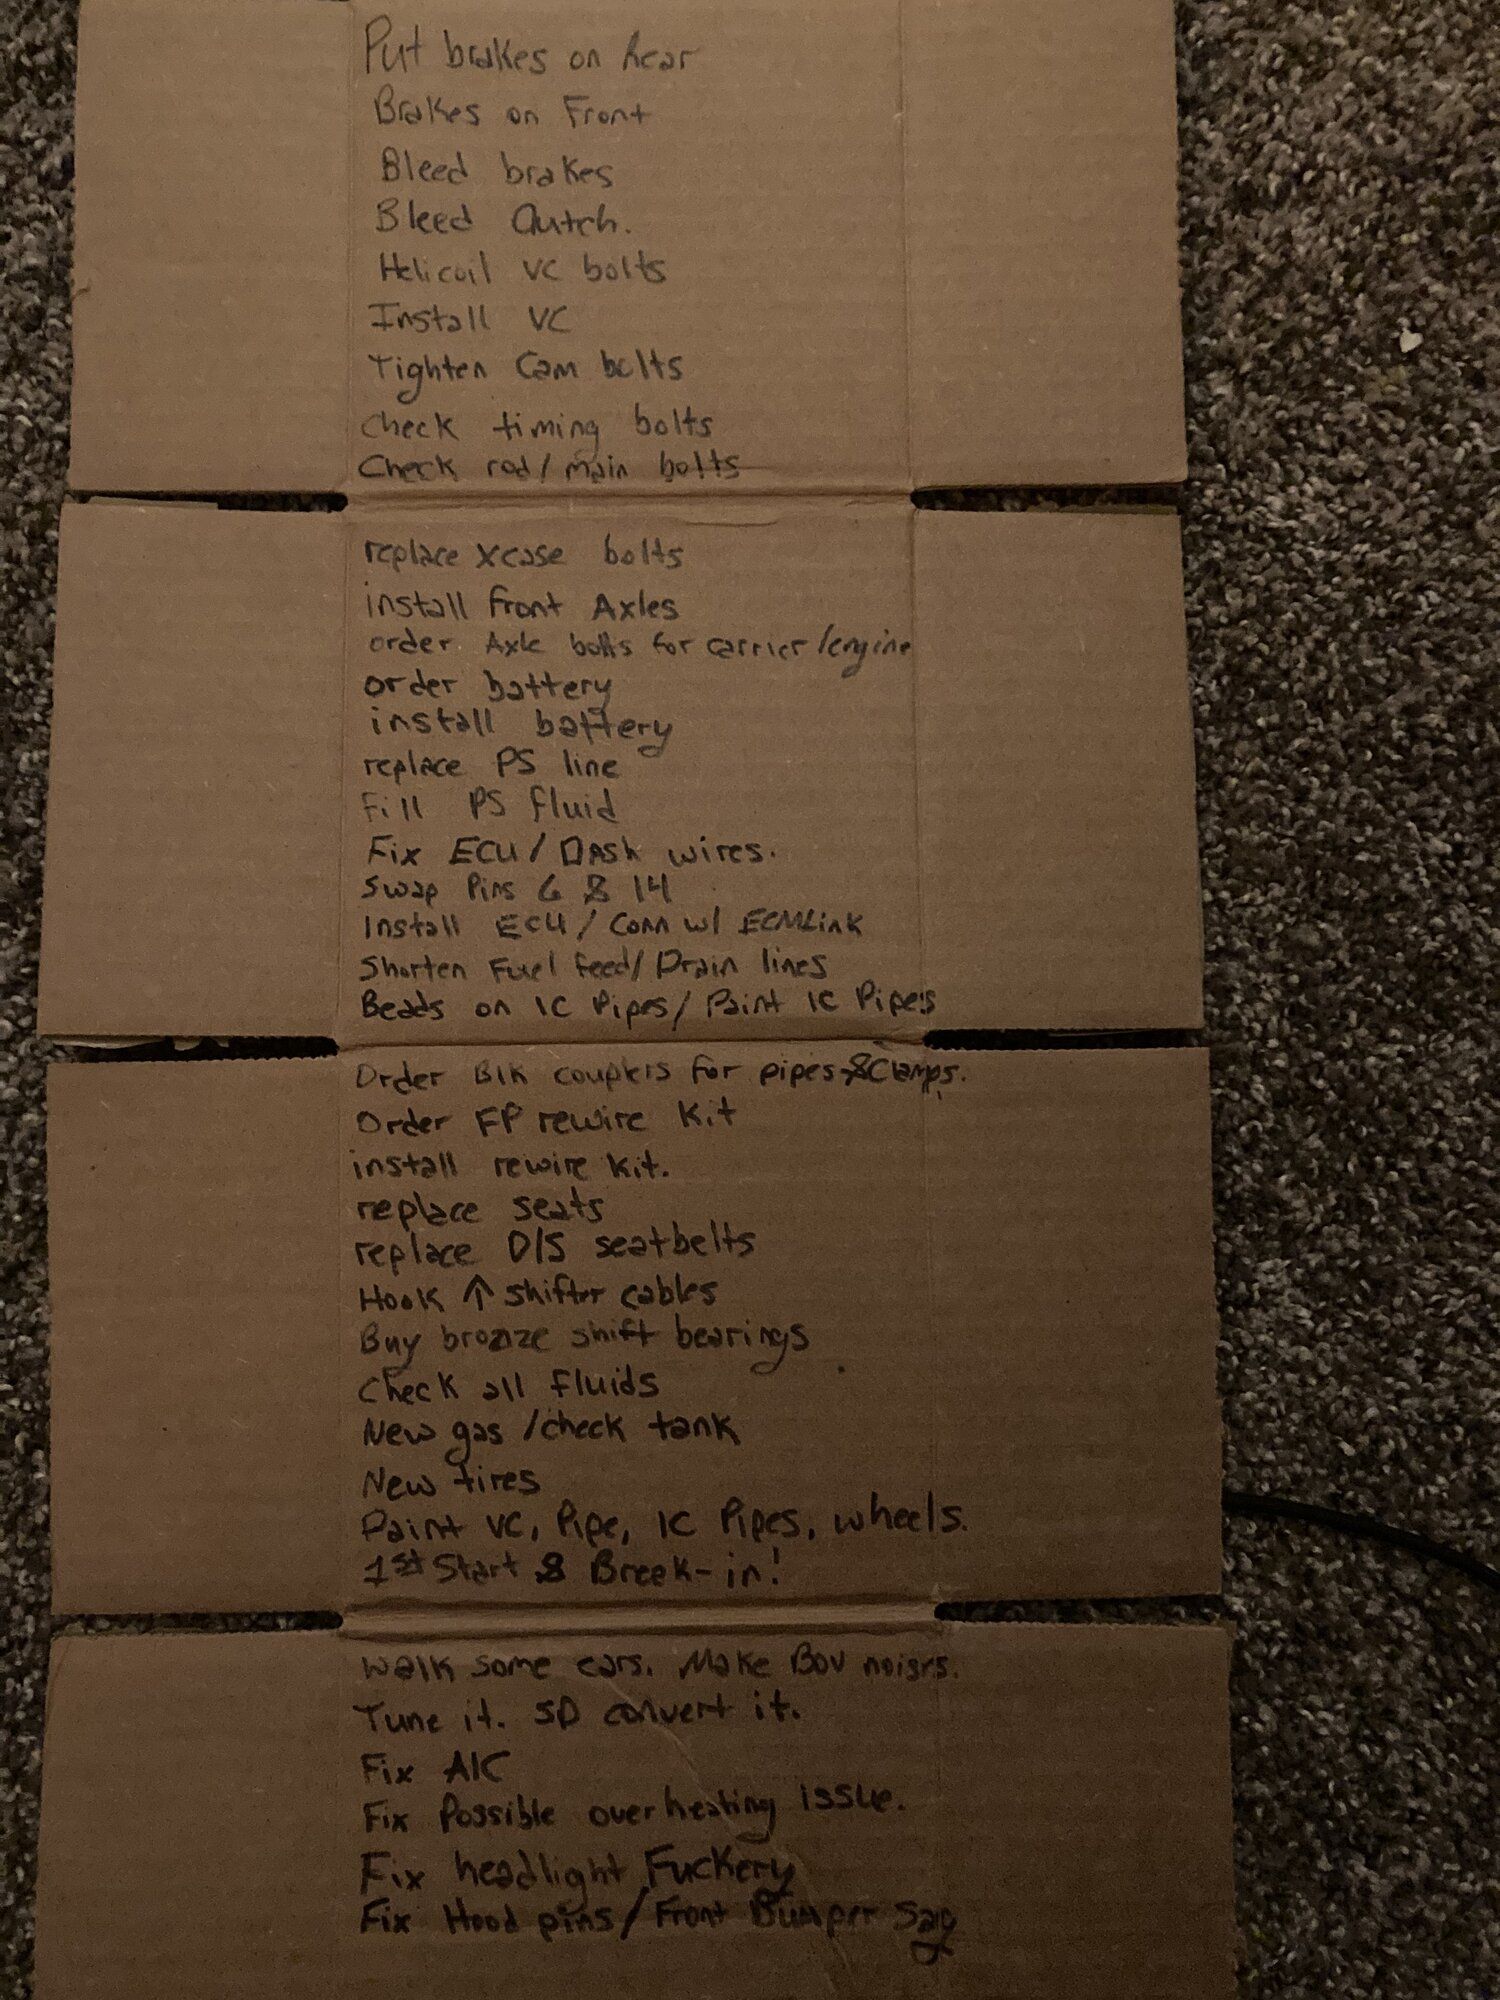 Put brakes on Rear
Brakes on Front
Bleed brakes
Bleed Clutch.
Helicoil VC bolts
Install VC
Tighten Cam bolts
Check timing bolts
Check rod/main bolts
replace xcase bolts
install front Axles
order Axle bolts for carrier/engine
order battery
install battery
replace PS line
Fill PS fluid
Fix ECU/DASH wires.
Swap Pins 6 & 14
Install ECU/Conn w/ ECMLink
Shorten Fuel feed/Drain lines
Beads on IC Pipes/Paint IC Pipes
Order Blk couplers for pipes & Clamps.
Order FP rewire Kit
install rewire kit.
replace seats
replace D/S seatbelts
Hook ↑ shifter cables
Buy bronze shift bearings
Check all fluids
New gas/check tank
New tires
Paint VC, Pipe, IC Pipes, wheels.
1st Start & Break-in!
Walk some cars. Make BOV noises.
Tune it. SD convert it.
Fix A/C
Fix Possible overheating issue.
Fix headlight Fuckery
Fix Hood pins/Front Bumper Sag